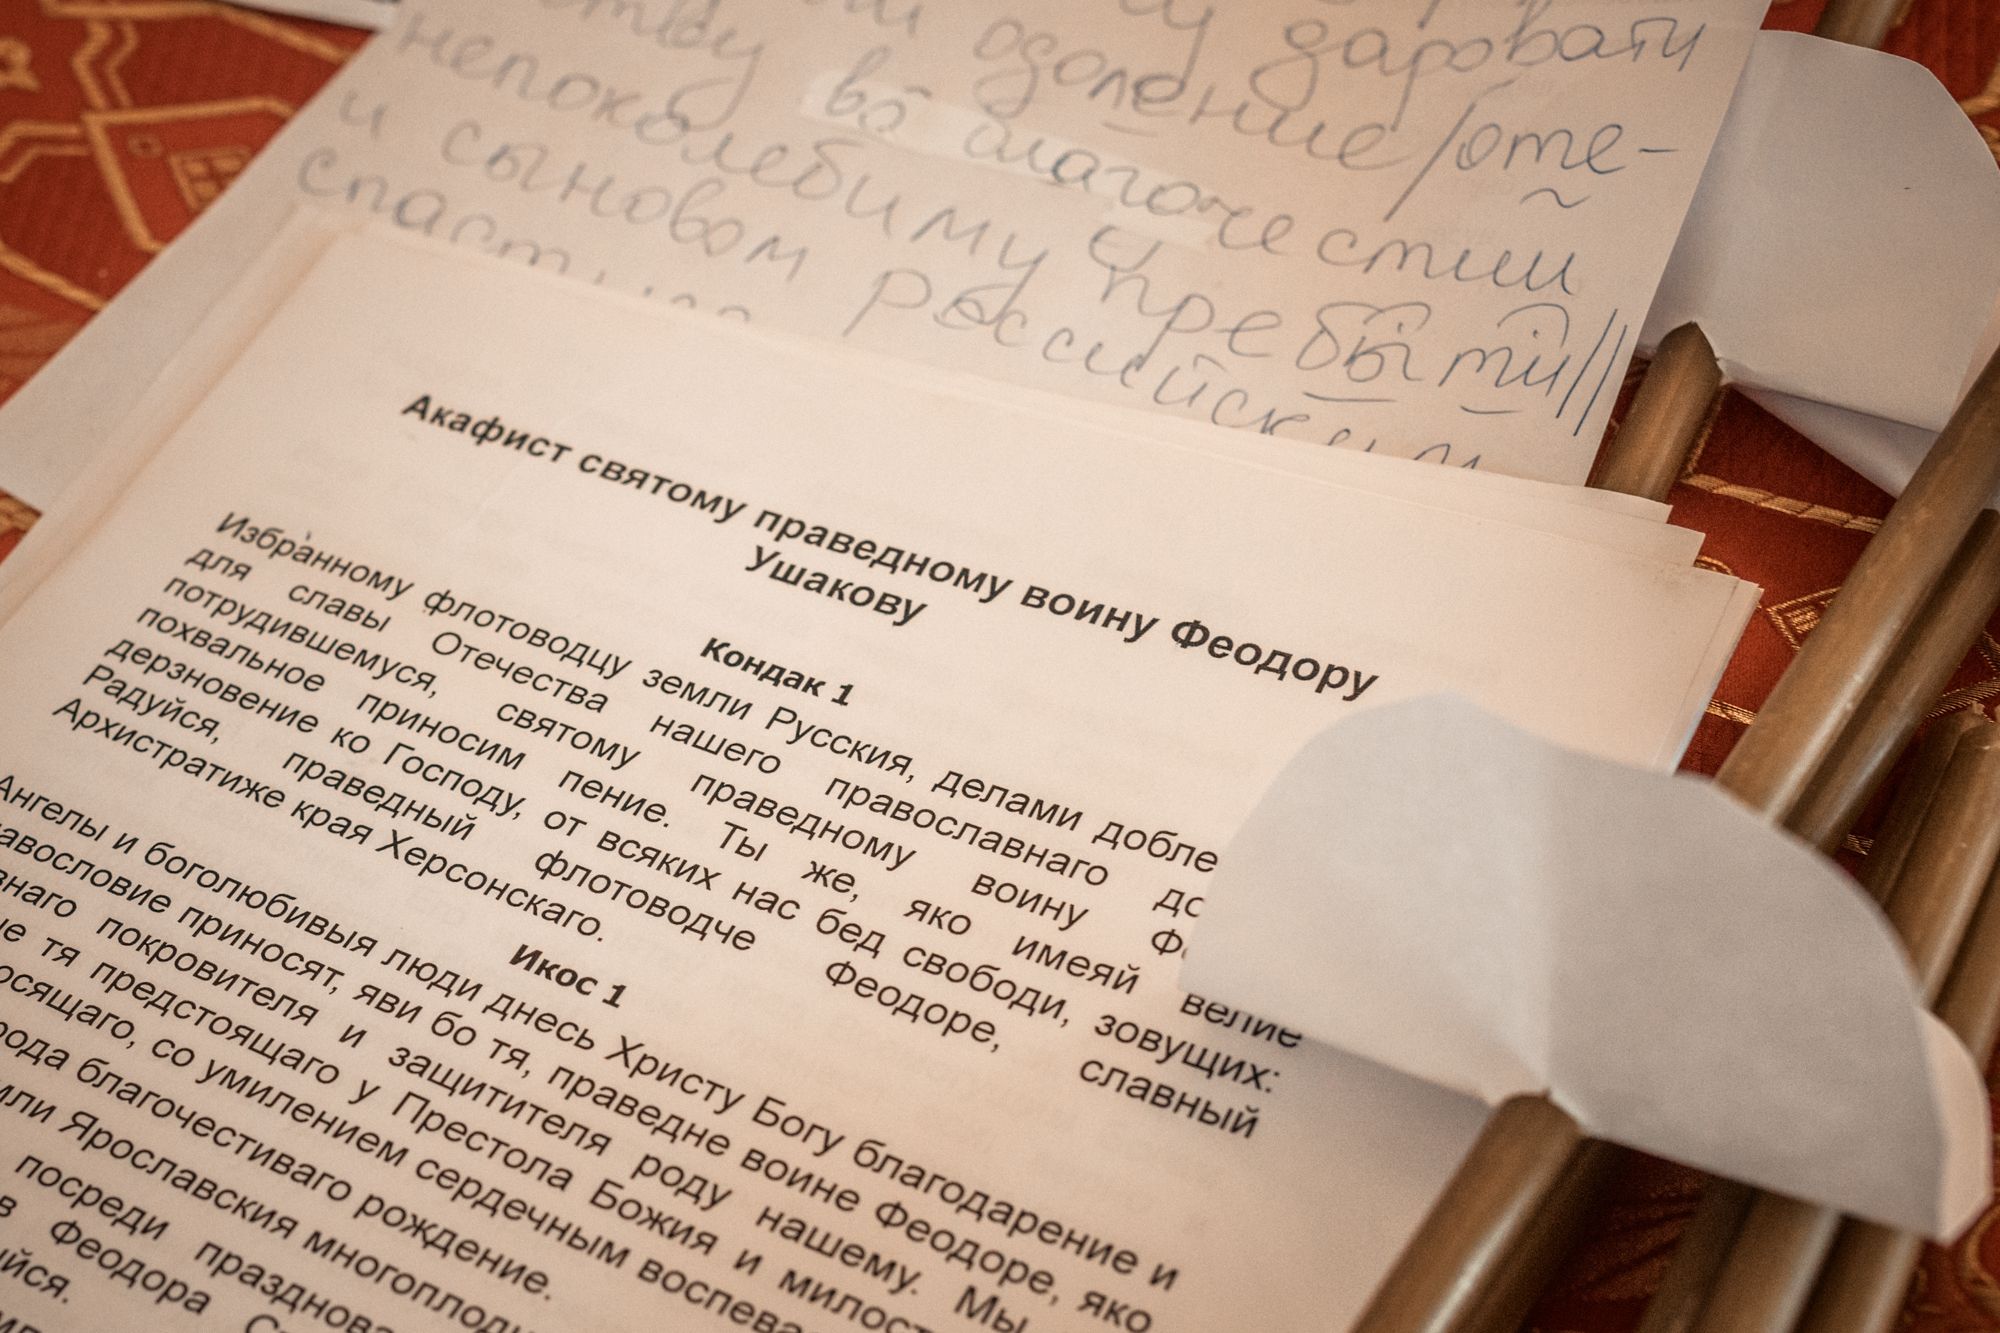 даровати
одоление/оте-
ству во благочестии
непоколебиму и пребыти//
и сыновом российским
Акафист святому праведному воину Феодору
Ушакову
Кондак 1
Избранному флотоводцу земли Русския, делами добле
для славы Отечества нашего православнаго до
потрудившемуся, святому праведному воину Фе
похвальное приносим пение. Ты же, яко имеяй велие
дерзновение ко Господу, от всяких нас бед свободи, зовущих:
Радуйся, праведный флотоводче Феодоре, славный
Архистратиже края Херсонскаго.
Икос 1
Ангелы и боголюбивыя люди днесь Христу Богу благодарение и
авословие приносят, яви бо тя, праведне воине Феодоре, яко
внаго покровителя и защитителя роду нашему. Мы
тя предстоящаго у Престола Божия и милост
осящаго, со умилением сердечным воспева
рода благочестиваго рождение.
мли Ярославския многоплод
посреди празднова
в Феодора С
йся.